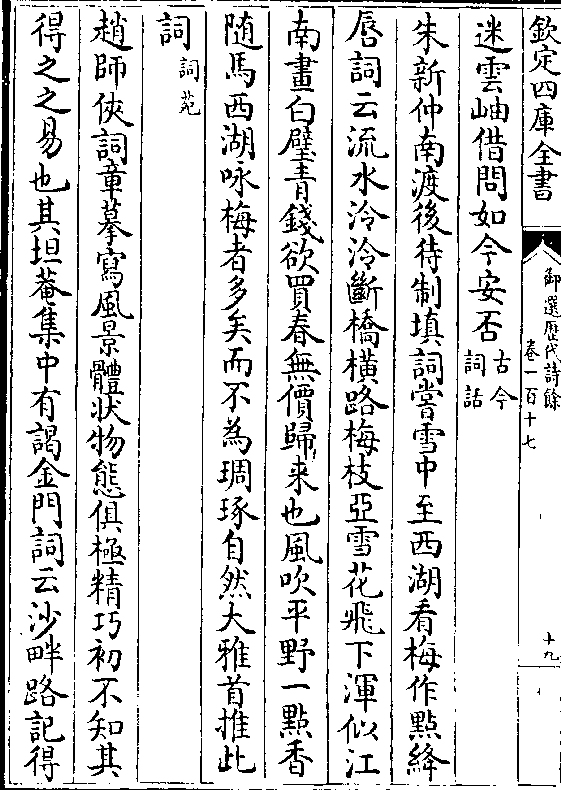 欽定四庫全書
御選歷代詩餘
卷一百十七
十九
迷雲岫借問如今安否古今詞話
朱新仲南渡後待制填詞嘗雪中至西湖看梅作點絳
唇詞云流水泠泠斷橋橫路梅枝亞雪花飛下渾似江
南畫白璧青錢欲買春無價歸来也風吹平野一點香
随馬西湖咏梅者多矣而不為琱琢自然大雅首推此
詞詞苑
趙師俠詞章摹寫風景體狀物態俱極精巧初不知其
得之之易也其坦菴集中有謁金門詞云沙畔路記得